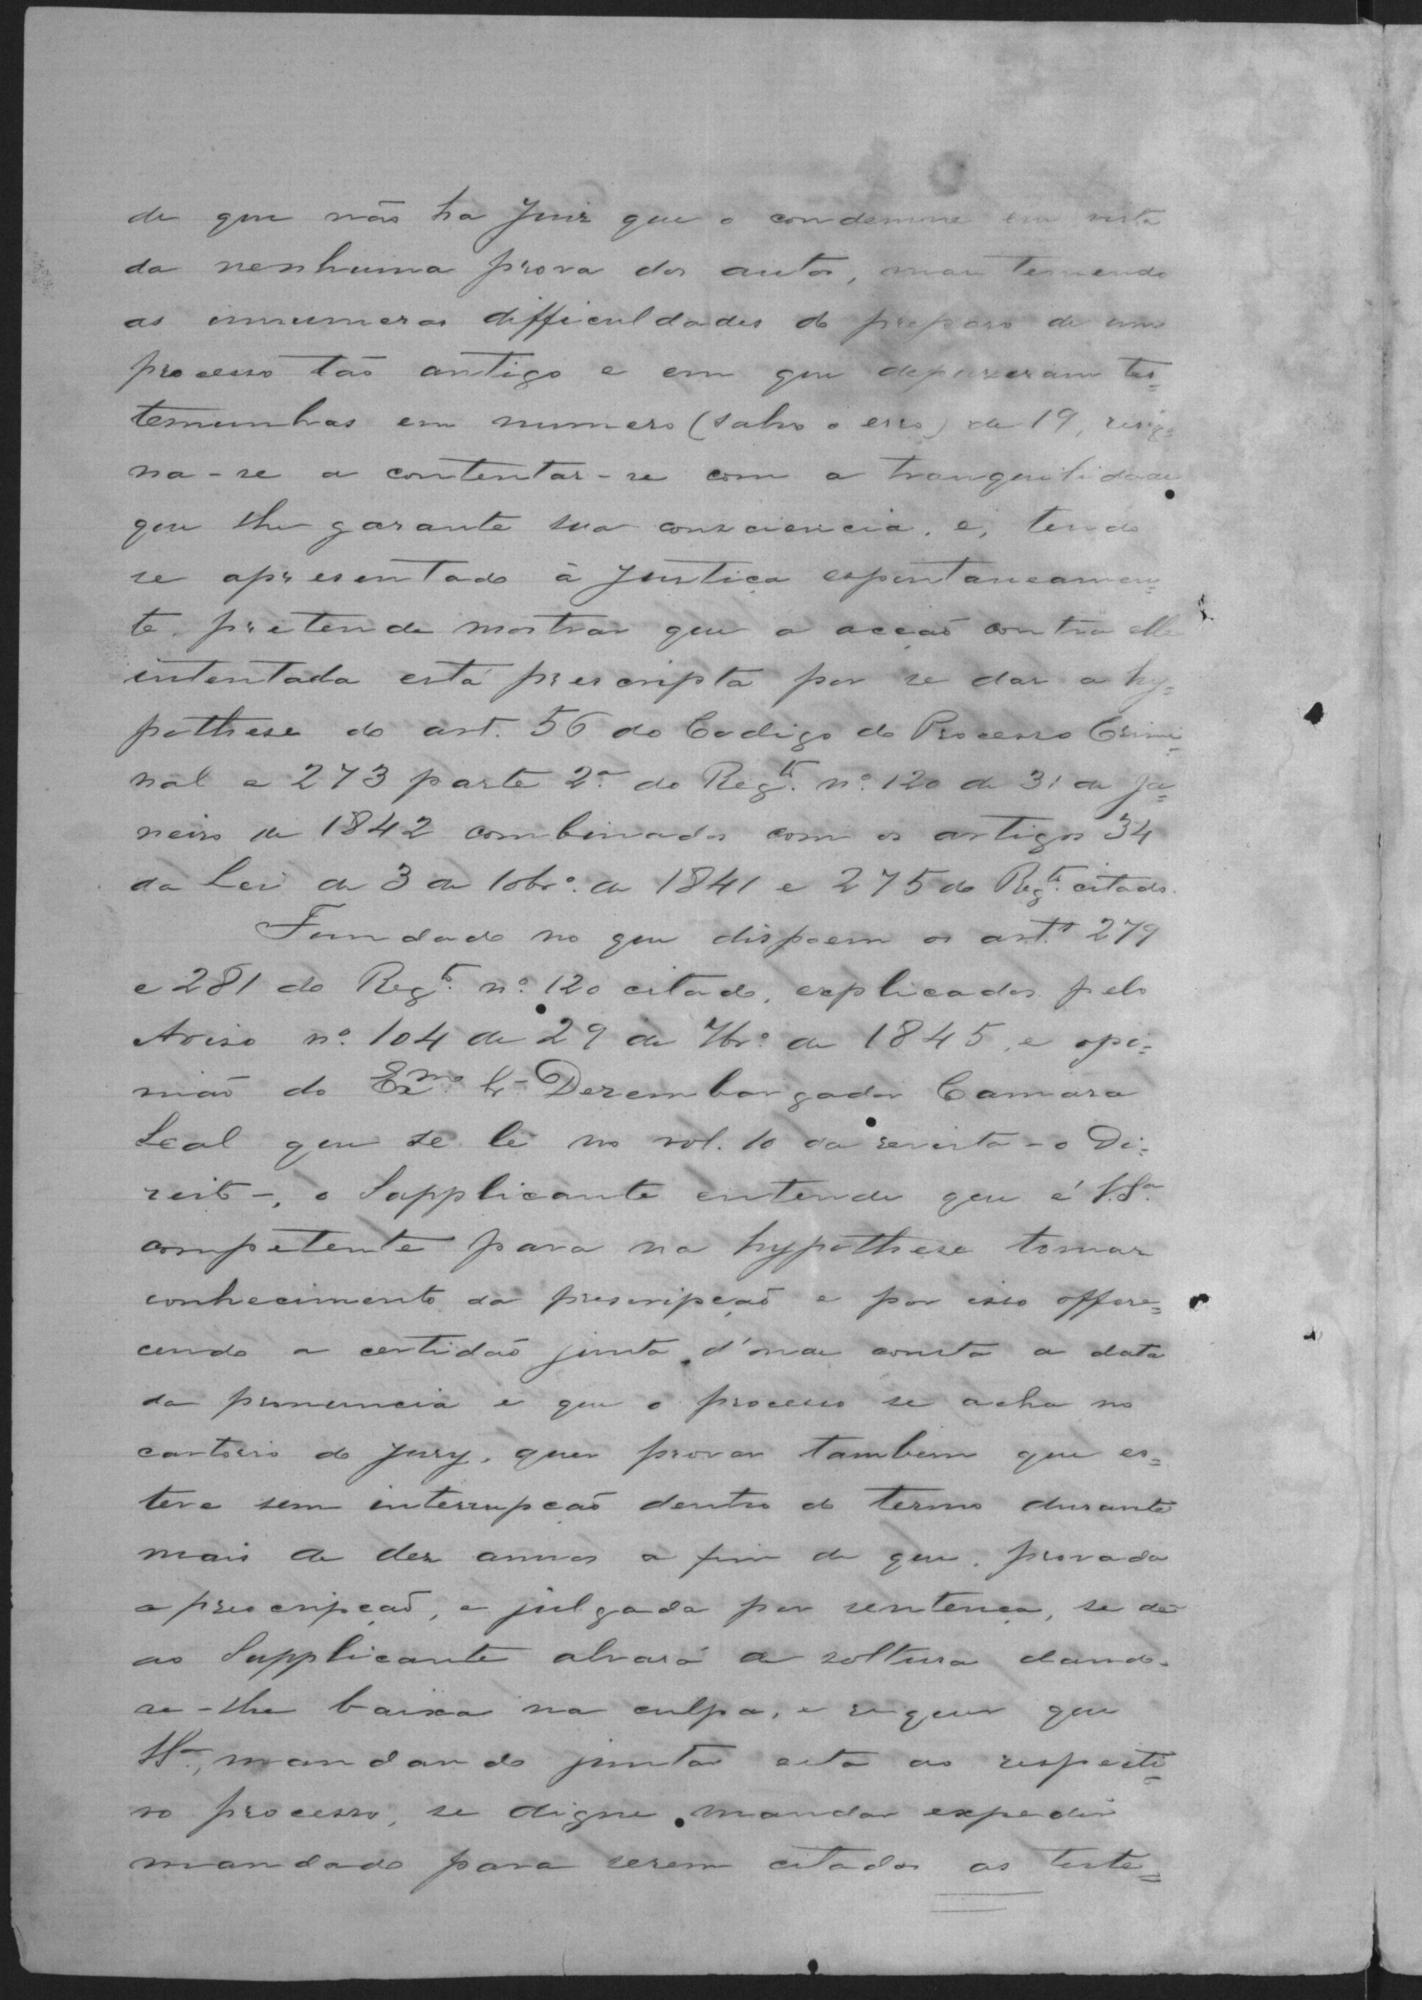 de que não ha Juiz que o condemne em vista
da nenhuma prova dos autos, mas temendo
as innumeras difficuldades do preparo de um
processo tão antigo e em que depuzeram tes=
temunhas em numero (salvo o erro) de 19, resig=
na-se a contentar-se com a tranquilidade
que lhe garante sua consciencia, e, tendo
se apresentado à Justiça espontaneamen=
te, pretende mostrar que a acção contra elle
intentada está prescripta por se dar a hy=
pothese do art. 56 do Codigo do Processo Crimi=
nal e 273 parte 2ª do Regto. nº 120 de 31 de Ja=
neiro de 1842 combinados com os artigos 34
da Lei de 3 de 10bro. de 1841 e 275 do Regto. citado.
Fundado no que dispoem os arts. 279
e 281 do Regto. nº 120 citado, explicados pelo
Aviso nº 104 de 29 de 7bro. de 1845, e opi=
nião do Exmo Sr. Desembargador Camara
Leal que se lê no vol. 10 da revista - o Di=
reito -, o Supplicante entende que é V.Sa.
competente para na hypothese tomar
conhecimento da prescripção e por isso offere=
cendo a certidão junta, d'onde consta a data
da pronuncia e que o processo se acha no
cartorio do Jury, quer provar tambem que es=
teve sem interrupção dentro do termo durante
mais de dez annos a fim de que, provada
a prescripção, e julgada por sentença, se dê
ao Supplicante alvará de soltura dando-
se-lhe baixa na culpa, e requer que
V.Sa., mandando juntar esta ao respecti=
vo processo, se digne mandar expedir
mandado para serem citados as teste=